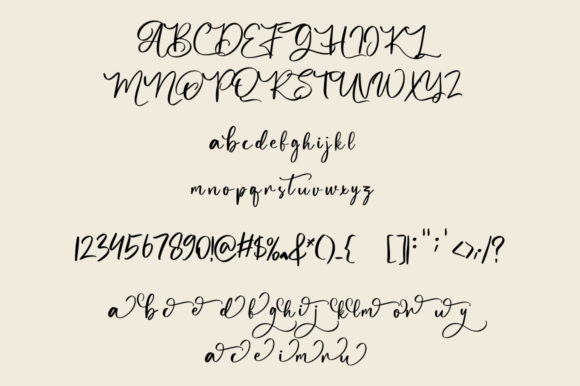 ABCDEFGHIJKL
MNOPQRSTUVWXYZ
abcdefghijkl
mnopqrstuvwxyz
1234567890!@#$%&*()_{ []|:";'<>,./?
a b c e d f g h i j k l m o r w y
a c e i m r u